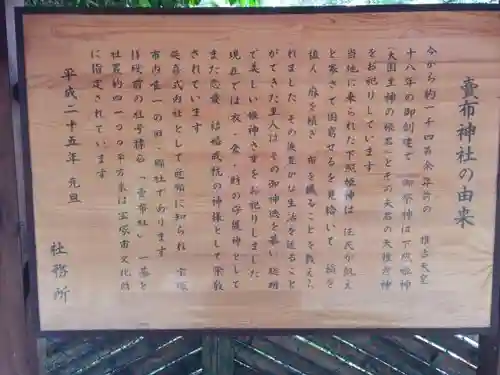 賣布神社の由来
今から約一千四百余年前の 推古天皇
十八年の御創建で 御祭神は下照姫神
(大国主神の姫君)とその夫君の天稚彦神
をお祀りしています
当地に来られた下照姫神は 住民が飢え
と寒さで困窮せるを見給いて 稲を
植え 麻を紡ぎ 布を織ることを教えら
れました その後豊かな生活を送ること
ができた里人は その御神徳を慕い 聡明
で美しい姫神さまをお祀りしました
現在では衣・食・財の守護神として
また恋愛 結婚成就の神様として崇敬
されています
延喜式内社として世間に知られ 宝塚
市内唯一の旧・郷社であります
拝殿前の社号標石「賣布社」一基と
社叢約四一〇〇平方米は宝塚市文化財
に指定されています
平成二十五年 元旦
社務所